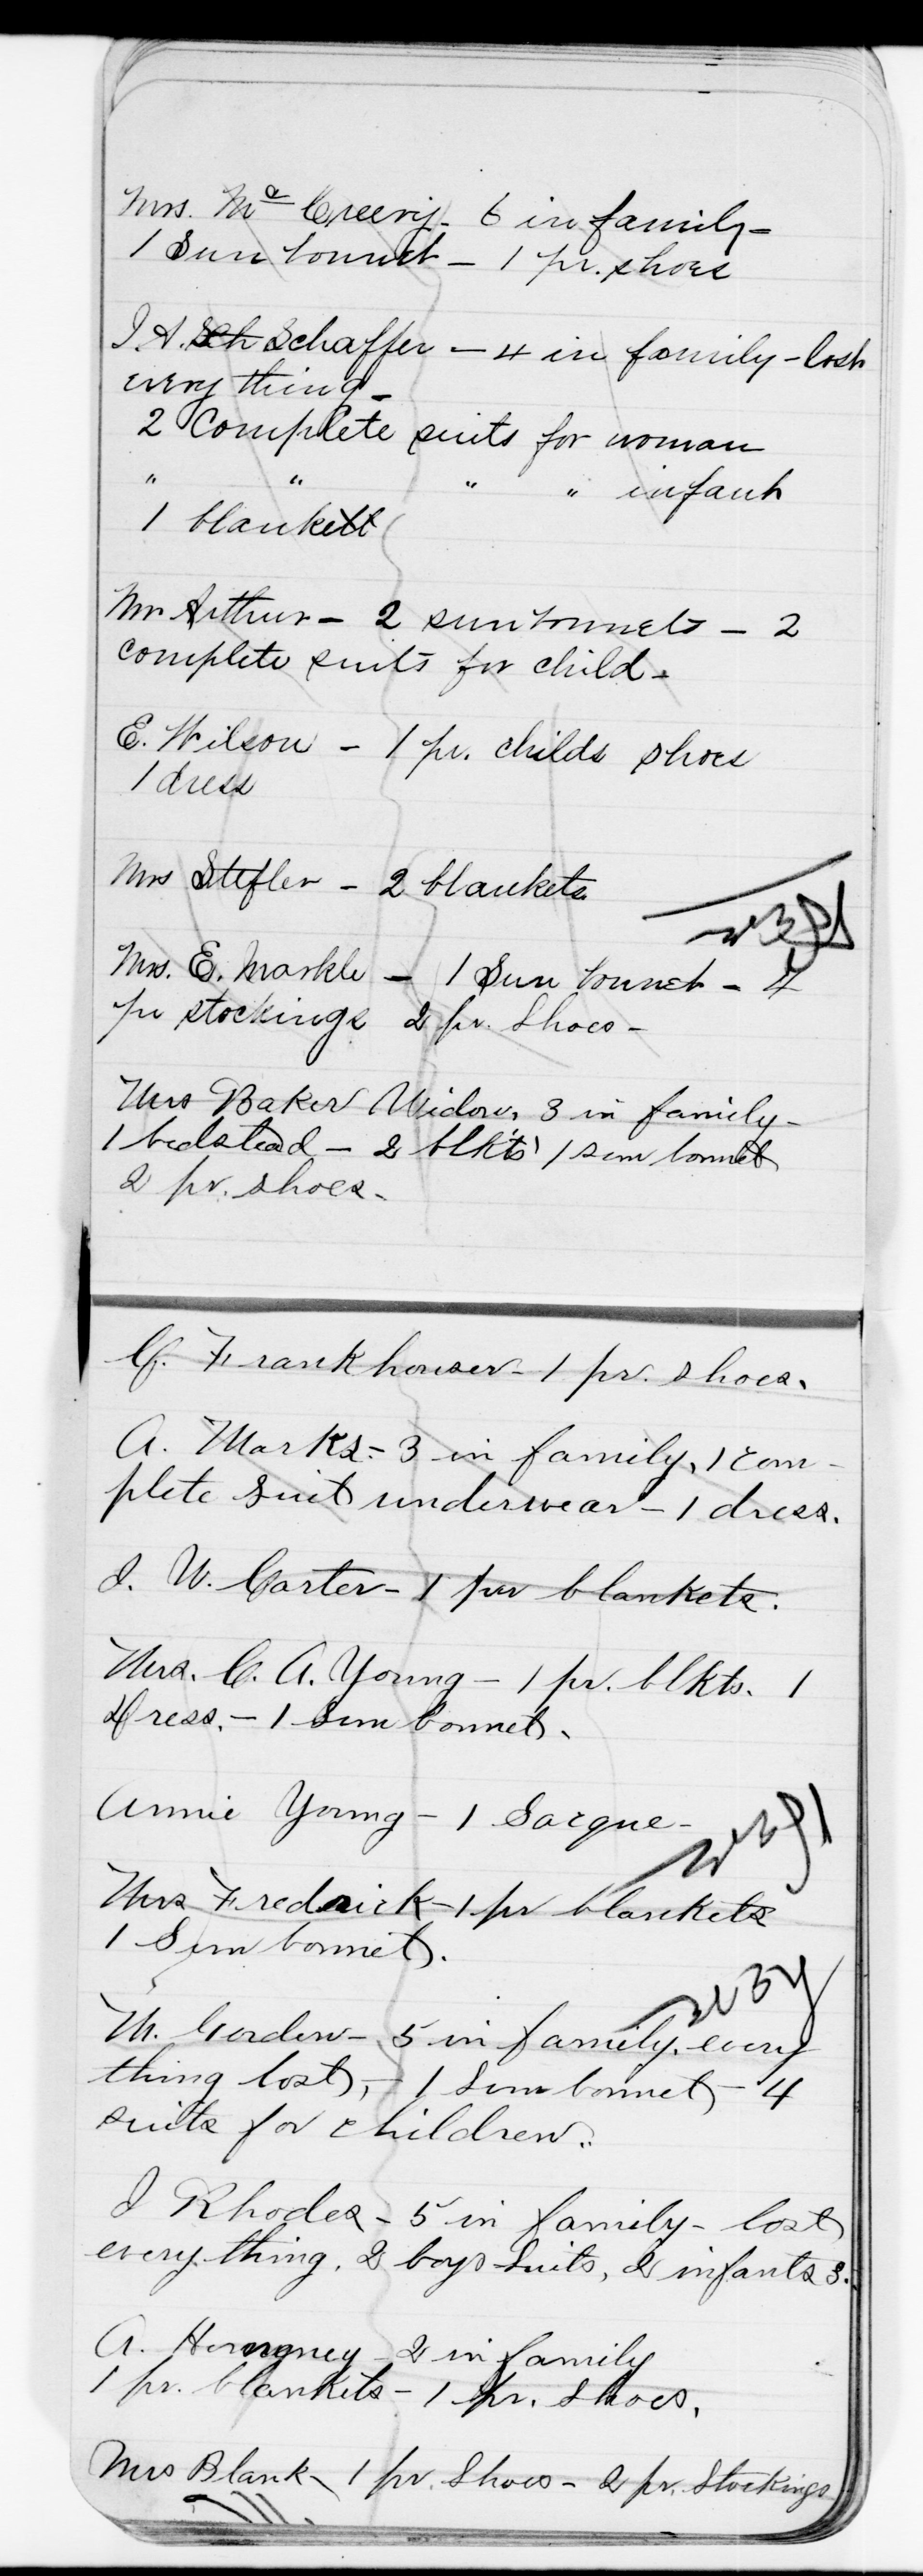 Mrs. Mc Creery - 6 in family -
1 Sun bonnet - 1 pr. shoes
J. A. Sch Schaffer - 4 in family - lost
every thing -
2 Complete suits for woman
" " " " infant
1 blankett
Mr Arthur - 2 sunbonnets - 2
complete suits for child -
E. Wilson - 1 pr. childs shoes
1 dress
Mrs Stefler - 2 blankets.
Mrs. E. Markle - 1 Sun bonnet -
pr stockings 2 pr. Shoes -
Mrs Baker Widow, 3 in family -
1 bedstead - 2 blkts 1 sun bonnet
2 pr. shoes -
C. Frankhouser - 1 pr. shoes.
A. Marks - 3 in family, 1 com-
plete suit underwear - 1 dress.
J. W. Carter - 1 pr blankets.
Mrs. C. A. Young - 1 pr. blkts. 1
Dress. - 1 Sun bonnet.
Annie Young - 1 Sacque -
Mrs Fredrick - 1 pr blankets
1 Sun bonnet.
M. Gordon - 5 in family. every
thing lost, - 1 Sun bonnet - 4
suits for children.
J Rhodes - 5 in family - lost
every thing. 2 boys Suits, 2 infants S.
A. - 2 in family
1 pr. blankets - 1 pr. Shoes.
Mrs Blank - 1 pr. Shoes - 2 pr. Stockings